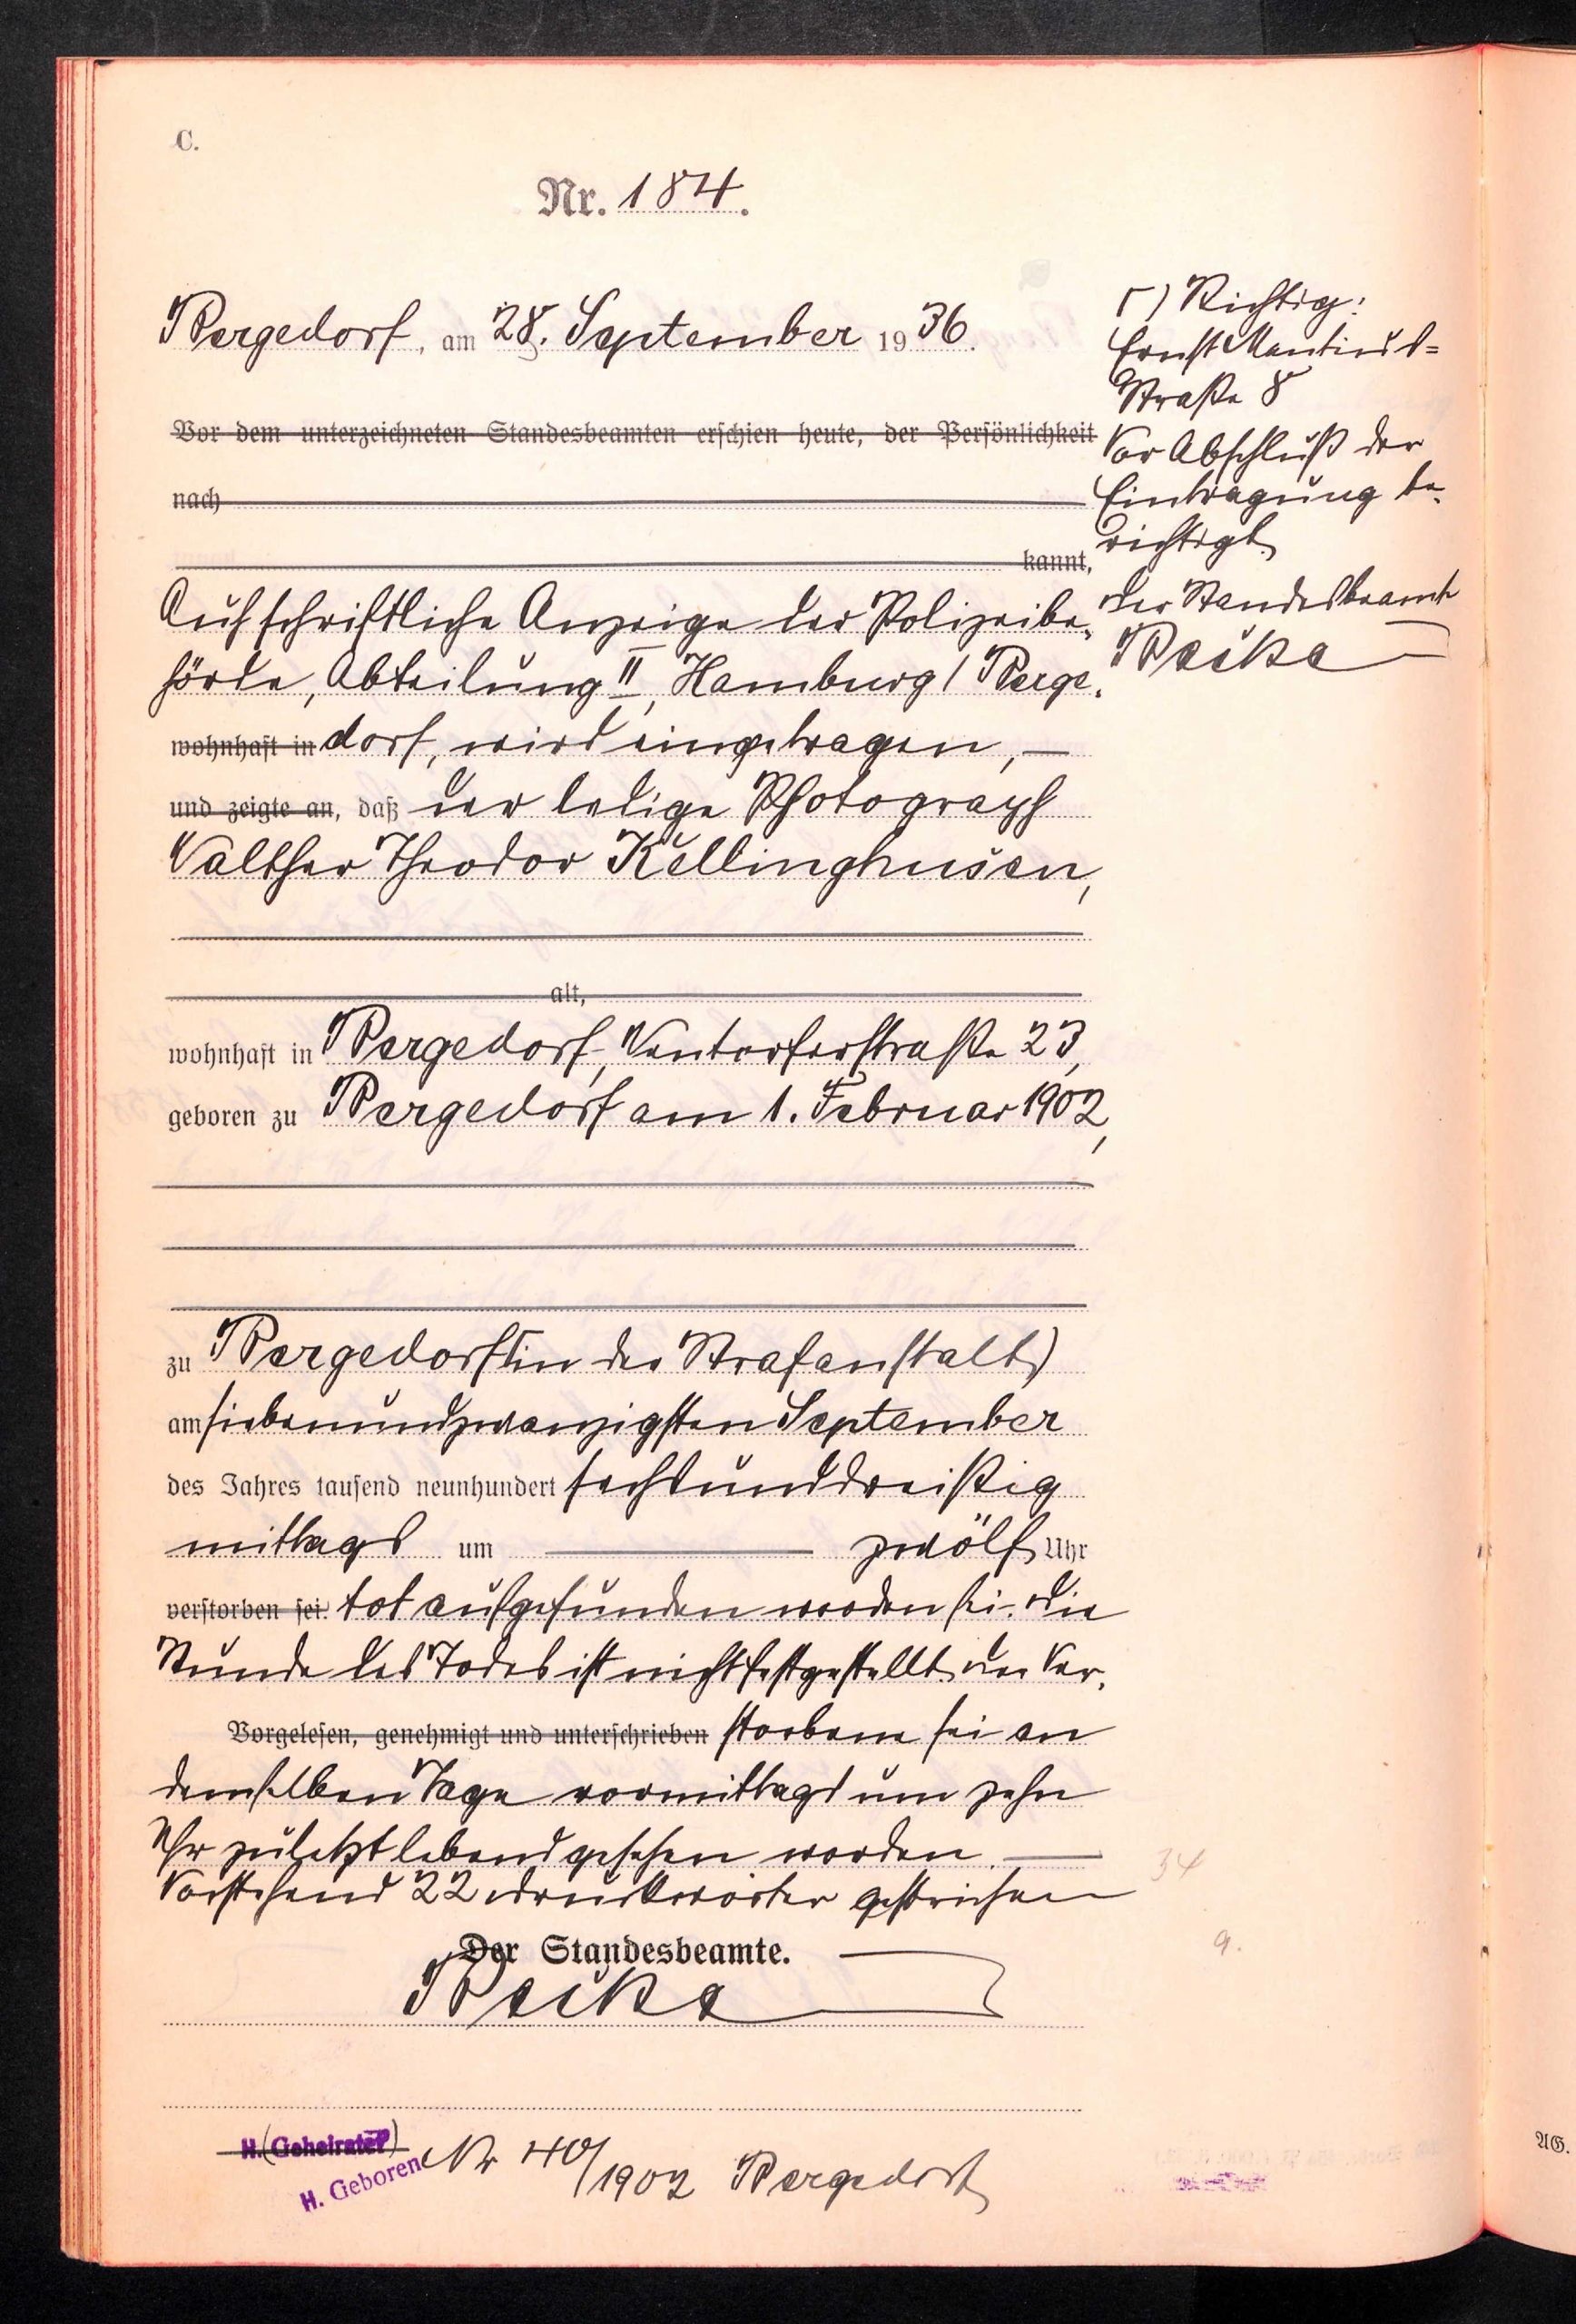 C.
Nr. 184.
Bergedorf, am 28. September 1936.
Vor dem unterzeichneten Standesbeamten erschien heute, der Persönlichkeit
nach
kannt,
Auf schriftliche Anzeige der Polizeibe-
hörde, Abteilung II, Hamburg / Berge-
wohnhaft in dorf, wird eingetragen, —
und zeigte an, daß der ledige Photograph
Walther Theodor Kellinghusen,
alt,
wohnhaft in Bergedorf, Wentorferstraße 23,
geboren zu Bergedorf am 1. Februar 1902,
zu Bergedorf Γ(in der Strafanstalt)
am siebenundzwanzigsten September
des Jahres tausend neunhundert sechsunddreißig
mittags um — zwölf Uhr
verstorben sei. tot aufgefunden worden sei. Die
Stunde des Todes ist nicht festgestellt. Der Ver-
Vorgelesen, genehmigt und unterschrieben storbene sei an
demselben Tage vormittags um zehn
Uhr zuletzt lebend gesehen worden. —
Vorstehend 22 Druckworte gestrichen
Der Standesbeamte.
Γ) Richtig:
Ernst Mantius-
Straße 8
Vor Abschluß der
Eintragung be-
richtigt.
Der Standesbeamte
H. (Geheiratet)
H. Geboren Nr 40/1902 Bergedorf
34
9.
AG.